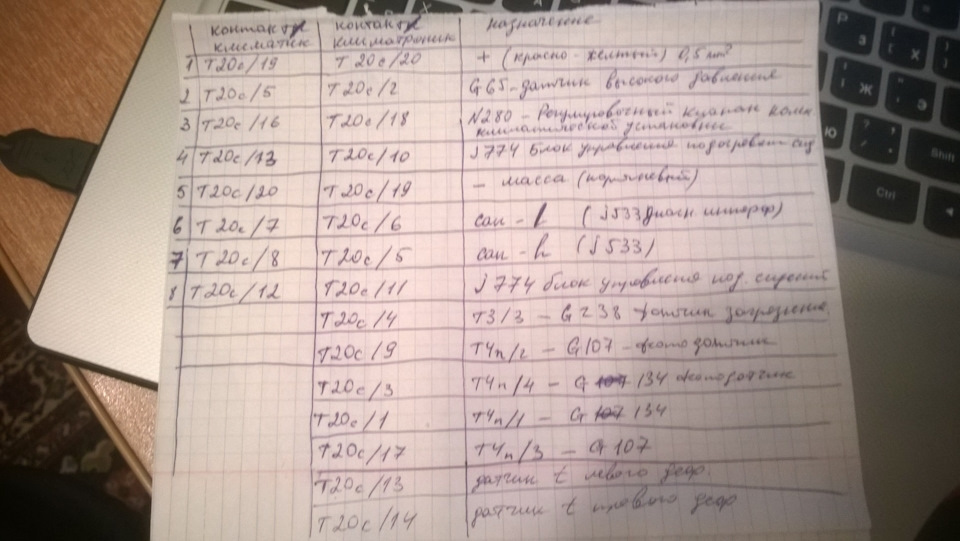 контакты климатик контакты климатроник назначение
1 T20c/19 T20c/20 + (красно-желтый) 0,5 mm²
2 T20c/5 T20c/2 G65-датчик высокого давления
3 T20c/16 T20c/18 N280 - Регулировочный клапан
климатической установки
4 T20c/13 T20c/10 J774 Блок управления подогревом сид
5 T20c/20 T20c/19 - масса (коричневый)
6 T20c/7 T20c/6 can - l (J533 диагн. интерф)
7 T20c/8 T20c/5 can - h (J533)
8 T20c/12 T20c/11 J774 блок управления под. сидений
T20c/4 T3/3 - G238 датчик загрязнения
T20c/9 T4n/2 - G107 - фотодатчик
T20c/3 T4n/4 - G 134 фотодатчик
T20c/1 T4n/1 - G 134
T20c/17 T4n/3 - G107
T20c/13 датчик t левого деф.
T20c/14 датчик t правого деф